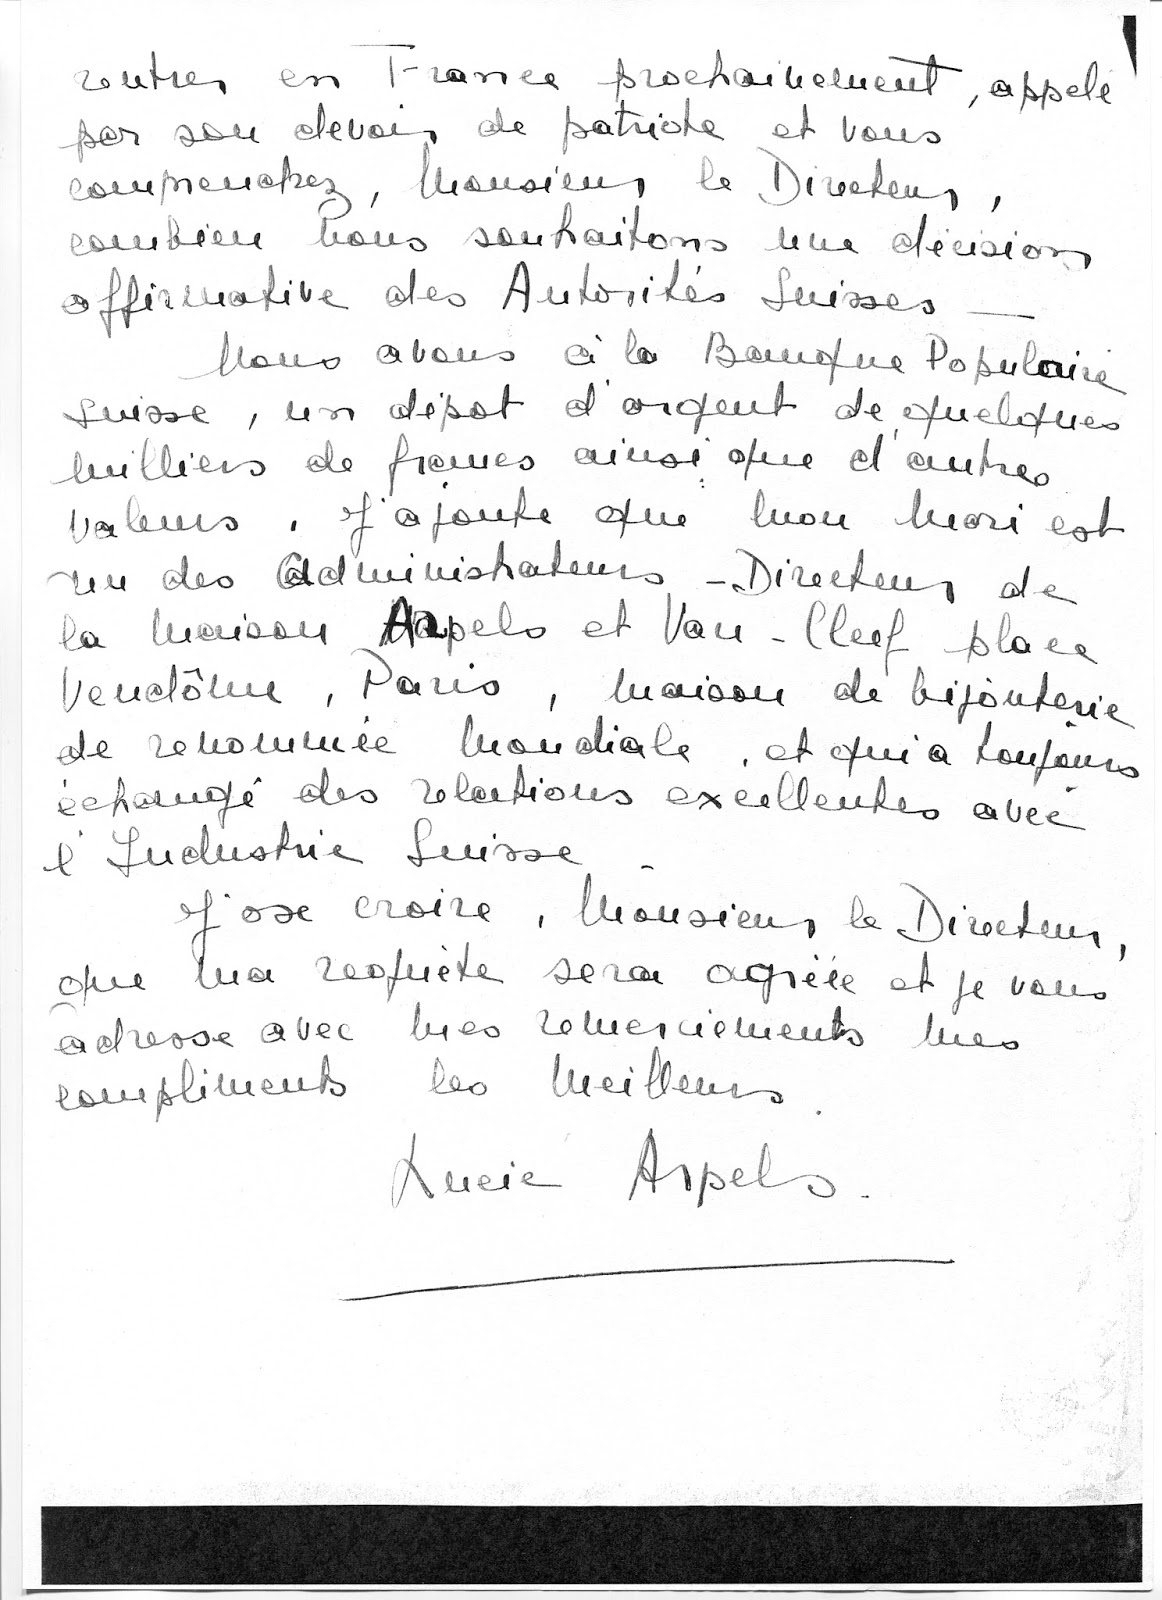 rentrer en France prochainement, appelé
par son devoir de patriote et vous
comprendrez, Monsieur le Directeur,
combien nous souhaitons une décision
affirmative des Autorités Suisses —
Nous avons à la Banque Populaire
Suisse, un dépot d'argent de quelques
milliers de francs ainsi que d'autres
valeurs. J'ajoute que mon mari est
un des Administrateurs - Directeur de
la maison Arpels et Van-Cleef place
Vendôme, Paris, maison de bijouterie
de renommée mondiale, et qui a toujours
échangé des relations excellentes avec
l'Industrie Suisse.
J'ose croire, Monsieur le Directeur,
que ma requête sera agréée et je vous
adresse avec mes remerciements mes
compliments les meilleurs.
Lucie Arpels.